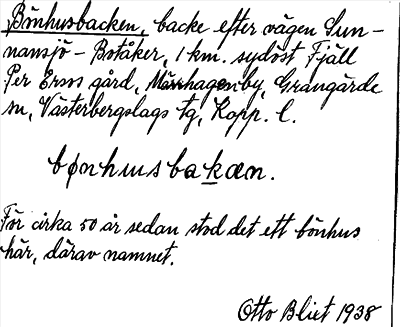 Bönhusbacken, backe efter vägen Sun-
nansjö - Botåker, 1 km. sydöst Fjäll
Per Ersos gård, Märrhagen by, Grangärde
sn, Västerbergslags tg, Kopp. l.
bønhusbakæn.
För cirka 50 år sedan stod det ett bönhus
här, därav namnet.
Otto Blixt 1938